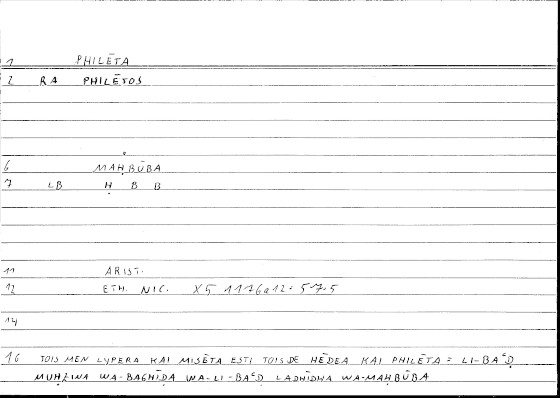 1 PHILĒTA
2 RA PHILĒTOS
6 MAḤBŪBA
7 LB Ḥ B B
11 ARIST.
12 ETH. NIC. X5 1176a12 = 575
14
16 TOIS MEN LYPERA KAI MISĒTA ESTI TOIS DE HĒDEA KAI PHILĒTA = LI-BAʿḌ
MUḤZINA WA-BAGHĪḌA WA-LI-BAʿḌ LADHĪDHA WA-MAḤBŪBA